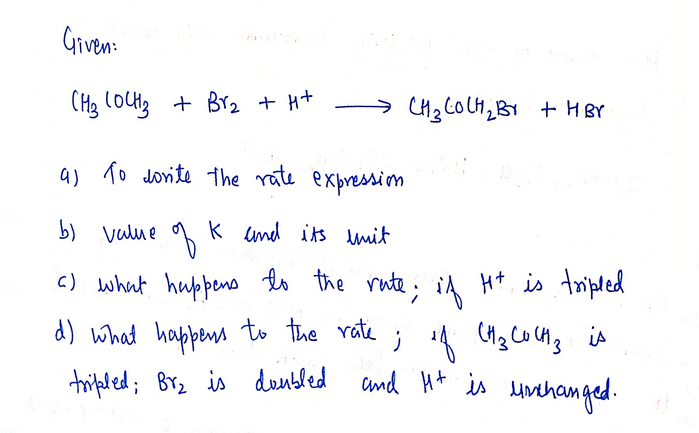 Given:
CH3COCH3 + Br2 + H+ ⟶ CH3COCH2Br + HBr
a) To write the rate expression
b) value of K and its unit
c) what happens to the rate; if H+ is tripled
d) What happens to the rate; if CH3COCH3 is
tripled; Br2 is doubled and H+ is unchanged.